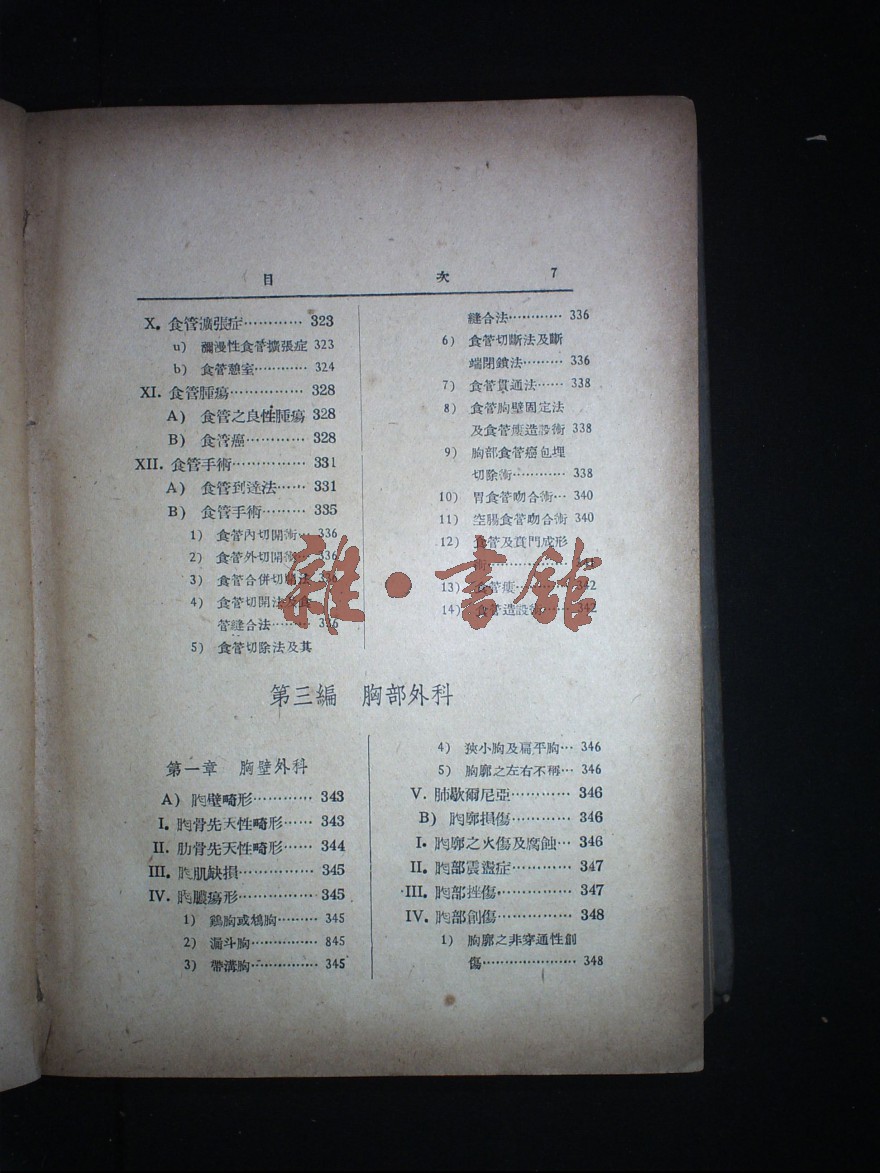 目 次 7
X. 食管擴張症………… 323
u) 瀰漫性食管擴張症 323
b) 食管憩室………… 324
XI. 食管腫瘍…………… 328
A) 食管之良性腫瘍 328
B) 食管癌………… 328
XII. 食管手術…………… 331
A) 食管到達法…… 331
B) 食管手術……… 335
1) 食管內切開術… 336
2) 食管外切開術… 336
3) 食管合併切開法 336
4) 食管切開法及食
管縫合法……… 336
5) 食管切除法及其
縫合法………… 336
6) 食管切斷法及斷
端閉鎖法……… 336
7) 食管貫通法…… 338
8) 食管胸壁固定法
及食管瘻造設術 338
9) 胸部食管癌包埋
切除術………… 338
10) 胃食管吻合術… 340
11) 空腸食管吻合術 340
12) 食管及賁門成形
術…………… 341
13) 食管瘻……… 342
14) 食管造設術…… 342
雜·書館
第三編 胸部外科
第一章 胸壁外科
A) 胸壁畸形………… 343
I. 胸骨先天性畸形…… 343
II. 肋骨先天性畸形…… 344
III. 胸肌缺損…………… 345
IV. 胸膿瘍形…………… 345
1) 鷄胸或鳩胸……… 345
2) 漏斗胸…………… 845
3) 帶溝胸…………… 345
4) 狹小胸及扁平胸… 346
5) 胸廓之左右不稱… 346
V. 肺歇爾尼亞………… 346
B) 胸廓損傷………… 346
I. 胸廓之火傷及腐蝕… 346
II. 胸部震盪症………… 347
III. 胸部挫傷………… 347
IV. 胸部創傷………… 348
1) 胸廓之非穿通性創
傷………………… 348